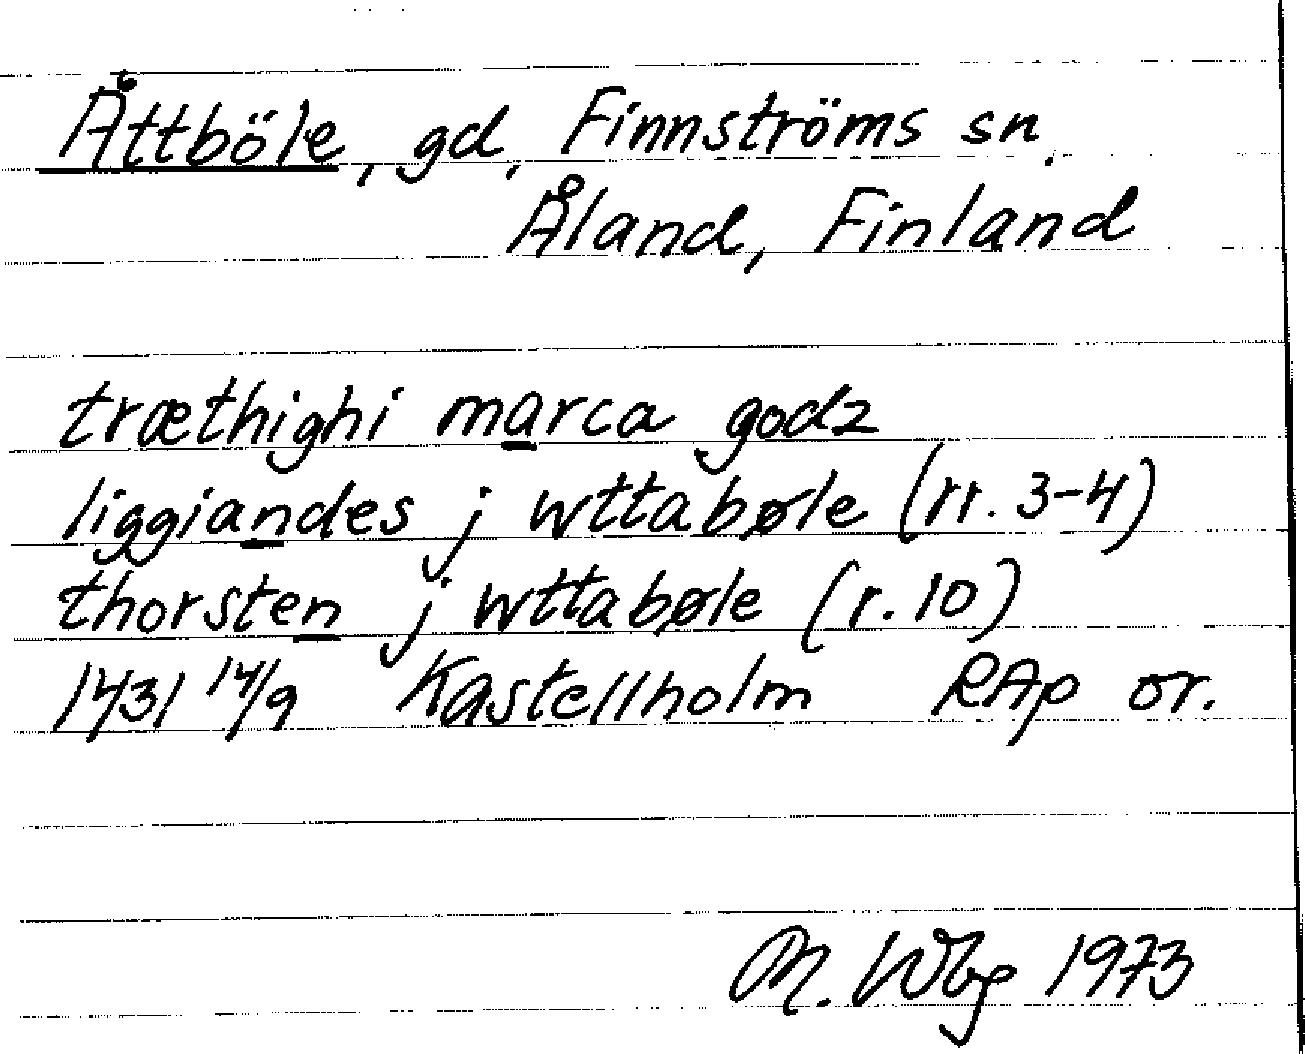 Åttböle, gd, Finnströms sn,
Åland, Finland
træthighi marca godz
liggiandes j wttabøle (rr. 3-4)
thorsten j wttabøle (r. 10)
1431 14/9 Kastellholm RAp or.
M. Wbg 1973